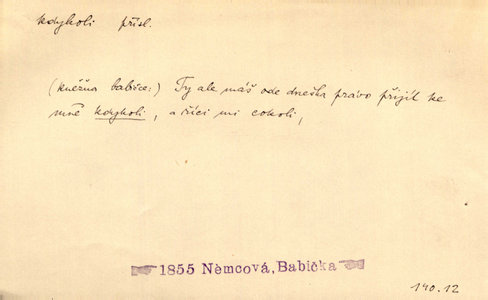 kdykoli přísl.
(kněžna babičce:) Ty ale máš ode dneška právo přijít ke
mně kdykoli, a říci mi cokoli,
1855 Němcová, Babička
140.12